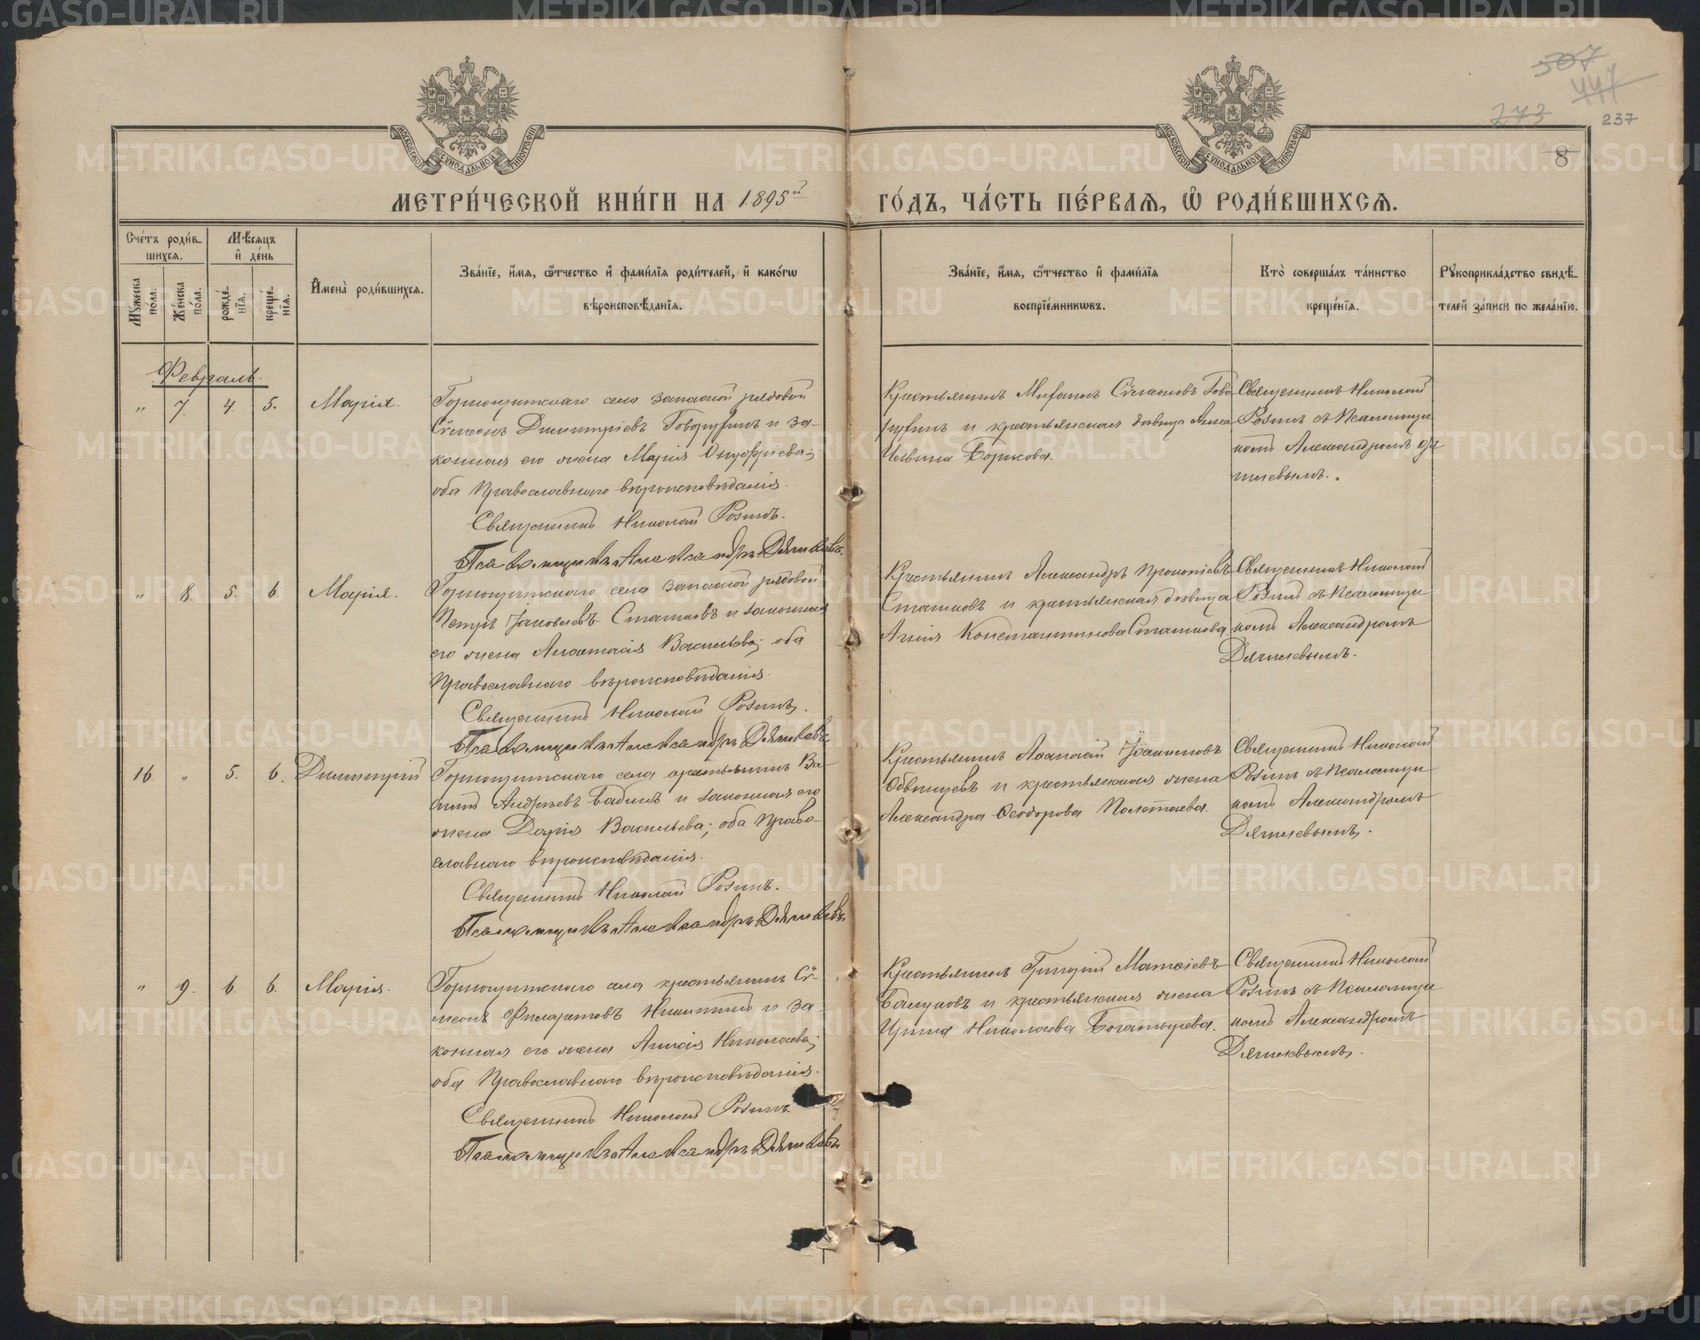 507
447
273
237
8
МЕТРИ́ЧЕСКОЙ КНИ́ГИ НА 1895й ГО́ДЪ, ЧА́СТЬ ПЕ́РВАЯ, Ѡ РОДИ́ВШИХСЯ.
Сче́тъ роди́в-
шихся.
Мѣсяцъ
и де́нь
Му́жеска по́ла.
Же́нска по́ла.
рожде́-нїя.
креще́-нїя.
Имена̀ роди́вшихся.
Зва́нїе, и́мя, ѻ҆́тчество и фами́лїя роди́телей, и како́гѡ
вѣроисповѣ́данїя.
Зва́нїе, и́мя, ѻ҆́тчество и фами́лїя
воспрїе́мникѡвъ.
Кто̀ соверша́лъ та́инство
креще́нїя.
Рꙋкоприкла́дство свидѣ́-
телей за́писи по жела́нїю.
Февраль.
" 7. 4 5. Марія.
Горнощитскаго села запасной рядовой
Сѵмеонъ Димитріевъ Говорухинъ и за-
конная его жена Марія Онуфріева;
оба Православнаго вѣроисповѣданія.
Священникъ Николай Розинъ.
Псаломщикъ Александръ Дягилевъ.
Крестьянинъ Сѵмеоновъ Гово
рухинъ и крестьянская дѣвица Анна
Борисова.
Священникъ Николай
Розинъ съ Псаломщи
комъ Александромъ Дя
гилевымъ.
" 8. 5. 6. Марія.
Горнощитскаго села запасной рядовой
Петръ Іаковлевъ Статковъ и законная
его жена Анастасія Васильева; оба
Православнаго вѣроисповѣданія.
Священникъ Николай Розинъ.
Псаломщикъ Александръ Дягилевъ.
Крестьянинъ Александръ Прокопіевъ
Статковъ и крестьянская дѣвица
Агнія Константинова Статкова
Священникъ Николай
Розинъ съ Псаломщи
комъ Александромъ
Дягилевымъ.
16 " 5. 6. Димитрій
Горнощитскаго села крестьянинъ Ва-
силій Андреевъ Бабинъ и законная его
жена Дарія Васильева; оба Право-
славнаго вѣроисповѣданія.
Священникъ Николай Розинъ.
Псаломщикъ Александръ Дягилевъ.
Крестьянинъ Аѳанасій Іоанновъ
и крестьянская жена
Александра Ѳеодорова Полетаева.
Священникъ Николай
Розинъ съ Псаломщи
комъ Александромъ
Дягилевымъ.
" 9. 6. 6. Марія.
Горнощитскаго села крестьянинъ Сѵ-
меонъ Филаретовъ Никитинъ и за-
конная его жена Анисія Николаева;
оба Православнаго вѣроисповѣданія.
Священникъ Николай Розинъ
Псаломщикъ Александръ Дягилевъ
Крестьянинъ Григорій Матѳіевъ
и крестьянская жена
Ирина Николаева Богатырева.
Священникъ Николай
Розинъ съ Псаломщи
комъ Александромъ
Дягилевымъ.
METRIKI.GASO-URAL.RU